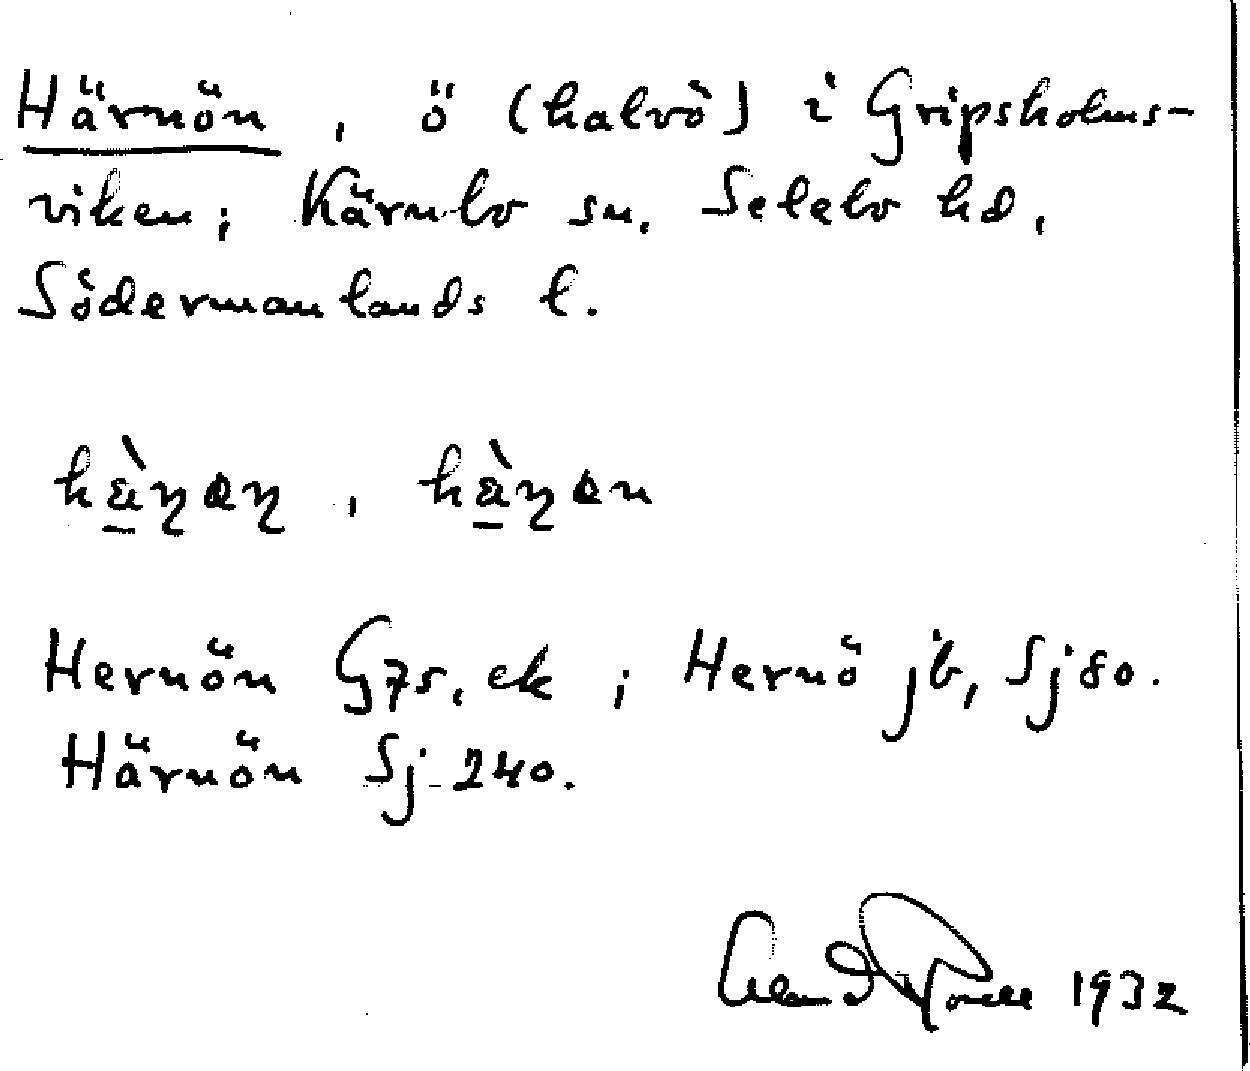 Härnön, ö (halvö) i Gripsholms-
viken; Kärnbo sn, Selebo hd,
Södermanlands l.
Hernön G75, ek; Hernö jb, Sj 80.
Härnön Sj 240.
1932